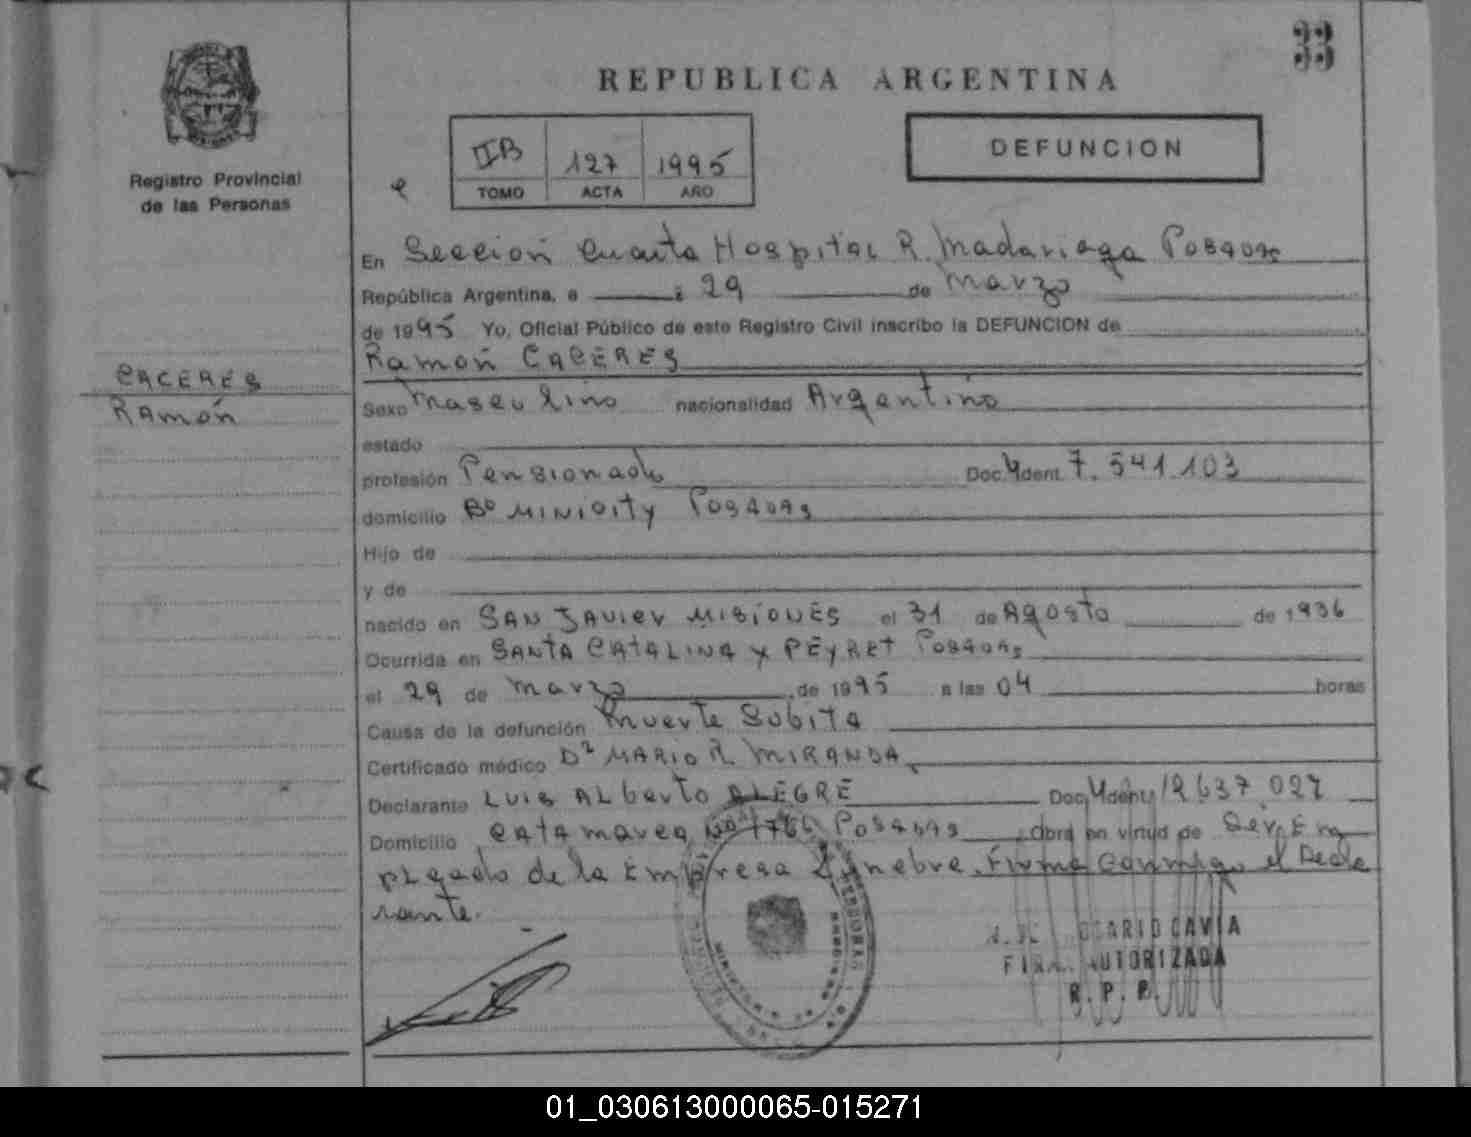 33
REPUBLICA ARGENTINA
Registro Provincial
de las Personas
IIB 127 1995
TOMO ACTA AÑO
DEFUNCION
CACERES
Ramón
En Sección Cuarta Hospital R. Madariaga Posadas
República Argentina, a 29 de Marzo
de 1995 Yo, Oficial Público de este Registro Civil inscribo la DEFUNCION de
Ramón CACERES
Sexo Masculino nacionalidad Argentino
estado
profesión Pensionado Doc. Ydent. 7.541.103
domicilio Bº MINICITY Posadas
Hijo de
y de
nacido en SAN JAVIER MISIONES el 31 de Agosto de 1936
Ocurrida en SANTA CATALINA y PEYRET Posadas
el 29 de Marzo de 1995 a las 04 horas
Causa de la defunción Muerte Subita
Certificado médico Dr MARIO R. MIRANDA
Declarante Luis Alberto ALEGRE Doc. Ydent. 12637 027
Domicilio Catamarca Nº 1766 Posadas Obra en virtud de Ser Em
pleado de la Empresa Funebre. Firma Conmigo el Decla
rante.
ROSARIO CAVIA
AUTORIZADA
R. P. P.
01_030613000065-015271